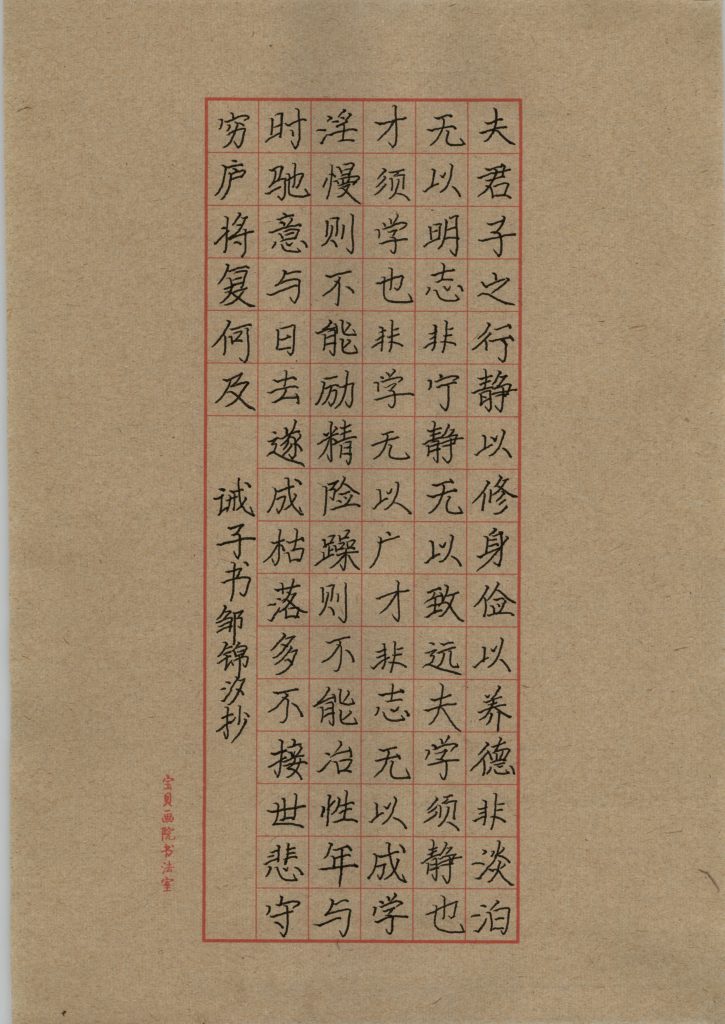 夫君子之行静以修身俭以养德非淡泊
无以明志非宁静无以致远夫学须静也
才须学也非学无以广才非志无以成学
淫慢则不能励精险躁则不能冶性年与
时驰意与日去遂成枯落多不接世悲守
穷庐将复何及
诫子书邹锦汐抄
宝贝画院书法室